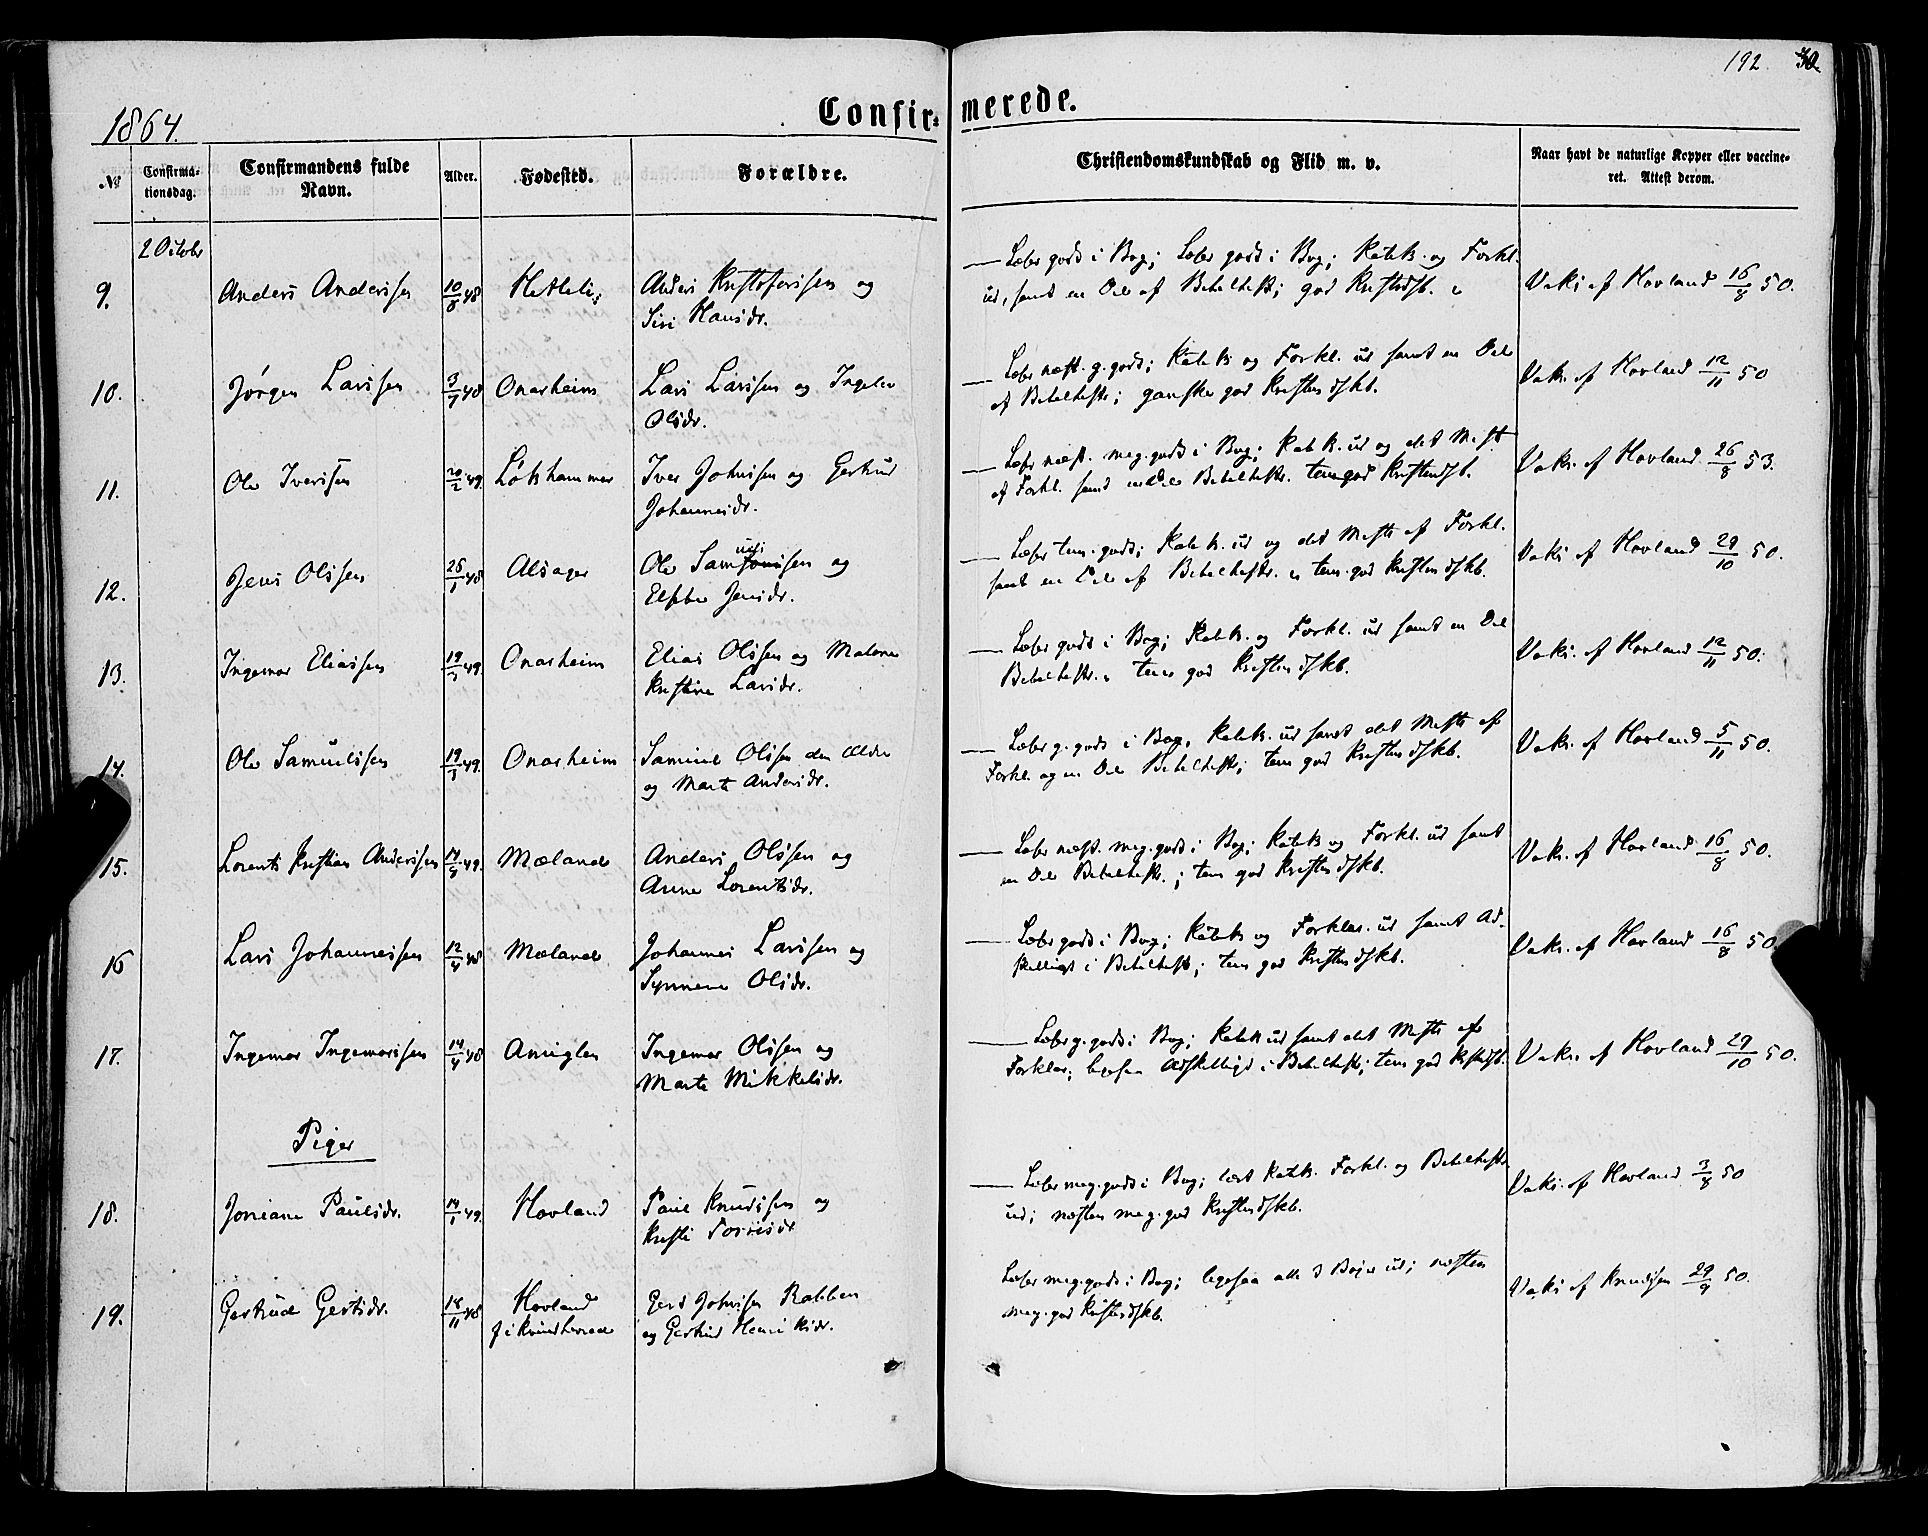 192. 30.
1864.
Confirmerede.
№
Confirma-
tionsdag.
Confirmandens fulde
Navn.
Alder.
Fødested.
Forældre.
Christendomskundskab og Flid m. v.
Naar havt de naturlige Kopper eller vaccine-
ret. Attest derom.
2 Octobr
9. Anders Anderssen 10/8 48 Anders Kristofersen og
Siri Hansdr.
— Læser godt i Bog; Læser godt i Bog; Katek. og Forkl.
ud, samt en Del af Bibelhist; god
Vaks. af Hovland 16/8 50.
10. Jørgen Larssen 48 Onarheim Lars Larssen og
Olsdr.
— Læser næst. g. godt; Katek og Forkl. ud samt en Del
af Bibelhistr; ganske god Kristendskb.
Vaks. af Hovland 12/11 50
11. Ole Iverssen 20/2 49. Løkshammer Iver Johnssen og Gertrud
Johannesdr.
— Læser næst. meg. godt i Bog; Katek. ud og det Mest
af Forkl. samt en Del Bibelhistr. tem. god Kristendskb.
Vaks. af Hovland 26/8 53.
12. Jens Olssen 48 Alsager Ole Samuelssen og
Elsebe Jensdr.
— Læser tem. godt; Katek. ud og det Meste af Forkl.
samt en Del af Bibelhistr. tem. god Kristendskb.
Vaks af Hovland 29/10 50.
13. Ingemar Eliassen 49. Onarheim Elias Olssen og Malene
Kristine Larsdr.
— Læser godt i Bog; Katek. og Forkl. ud samt en Del
Bibelhistr. tem god Kristendskb.
Vaks. af Hovland 12/11 50.
14. Ole Samuelssen 49. Onarheim Samuel Olssen den Ældre
og Marte Andersdr.
— Læser g. godt i Bog, Katek. ud samt det Meste af
Forkl. og en Del Bibelhistr; tem god Kristendskb.
Vaks. af Hovland 5/11 50.
15. Lorents Kristian Anderssen 49. Mæland Anders Olssen og
Anna Lorentsdr.
— Læser næst. meg. godt i Bog; Katek og Forkl. ud samt
en Del Bibelhistr.; tem god Kristendskb.
Vaks. af Hovland 16/8 50.
16 Lars Johannessen 12/4 48 Mæland Johannes Larssen og
Synneva Olsdr.
— Læser godt i Bog; Katek og Forklar. ud samt Ad-
skelligt i Bibelhist; tem god Kristendskb.
Vaks. af Hovland 16/8 50
17. Ingemar Ingemarssen 14/4 48 Anuglen Ingemar Olssen og
Marte Mikkelsdr.
— Læser g. godt i Bog; Katek ud samt det Meste af
Forklar; ligesaa Adskelligt i Bibelhist; tem god
Vaks. af Hovland 29/10 50.
Piger
18. Joniane Paulsdr. 14/1 49. Hovland Paul Knudssen og
Kristi
— Læser meg. godt i Bog; lært Katek. Forkl. og Bibelhist
ud; næsten meg. god Kristendskb.
Vaks. af Hovland 3/8 50
19. Gertrud Gertsdr. 18/11 48 Hovland
i Kvindherred
Gert Johnsen Rabben
og Gertrud Henriksdr.
Læser meg. godt i Bog; ligesaa alle 3 Bøger ud; næsten
meg. god Kristendskb.
Vaks af Knudssen 29/9 50.